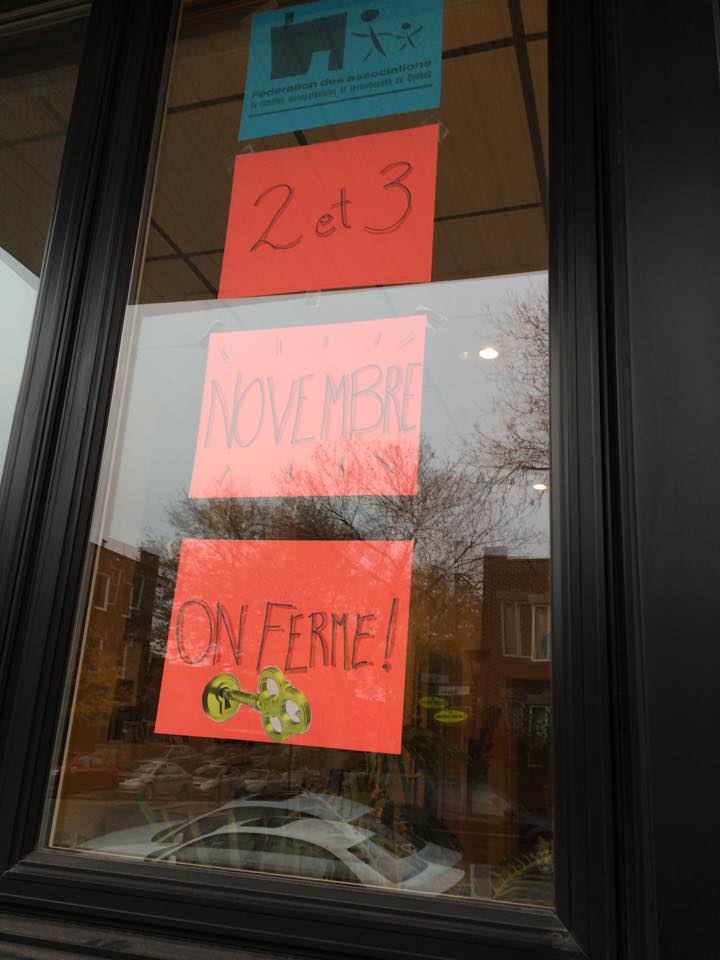 Fédération des associations
de familles monoparentales et recomposées du Québec
2 et 3
NOVEMBRE
ON FERME!